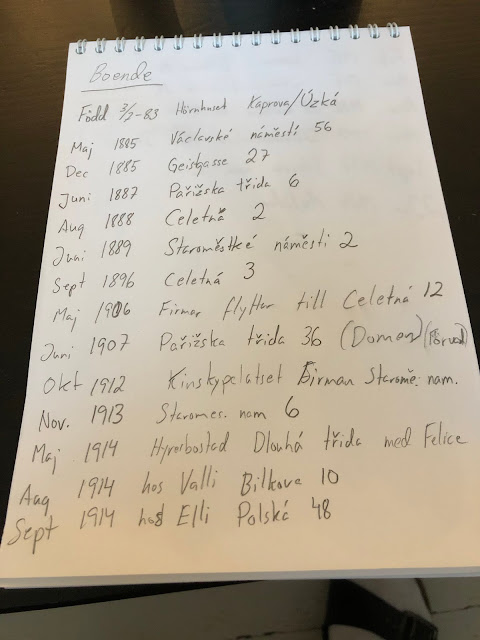 Boende
Född 3/7-83 Hörnhuset Kaprova/Úzká
Maj 1885 Václavské náměstí 56
Dec 1885 Geistgasse 27
Juni 1887 Pařížska třída 6
Aug 1888 Celetná 2
Juni 1889 Staroměstké náměsti 2
Sept 1896 Celetná 3
Maj 1906 Firman flyttar till Celetná 12
Juni 1907 Pařížska třída 36 (Domen)
Okt 1912 Kinskypalatset Firman Starome. nam.
Nov. 1913 Staromes. nam 6
Maj 1914 Hyr bostad Dlouhá třída med Felice
Aug 1914 hos Valli Bilkova 10
Sept 1914 hos Elli Polská 48